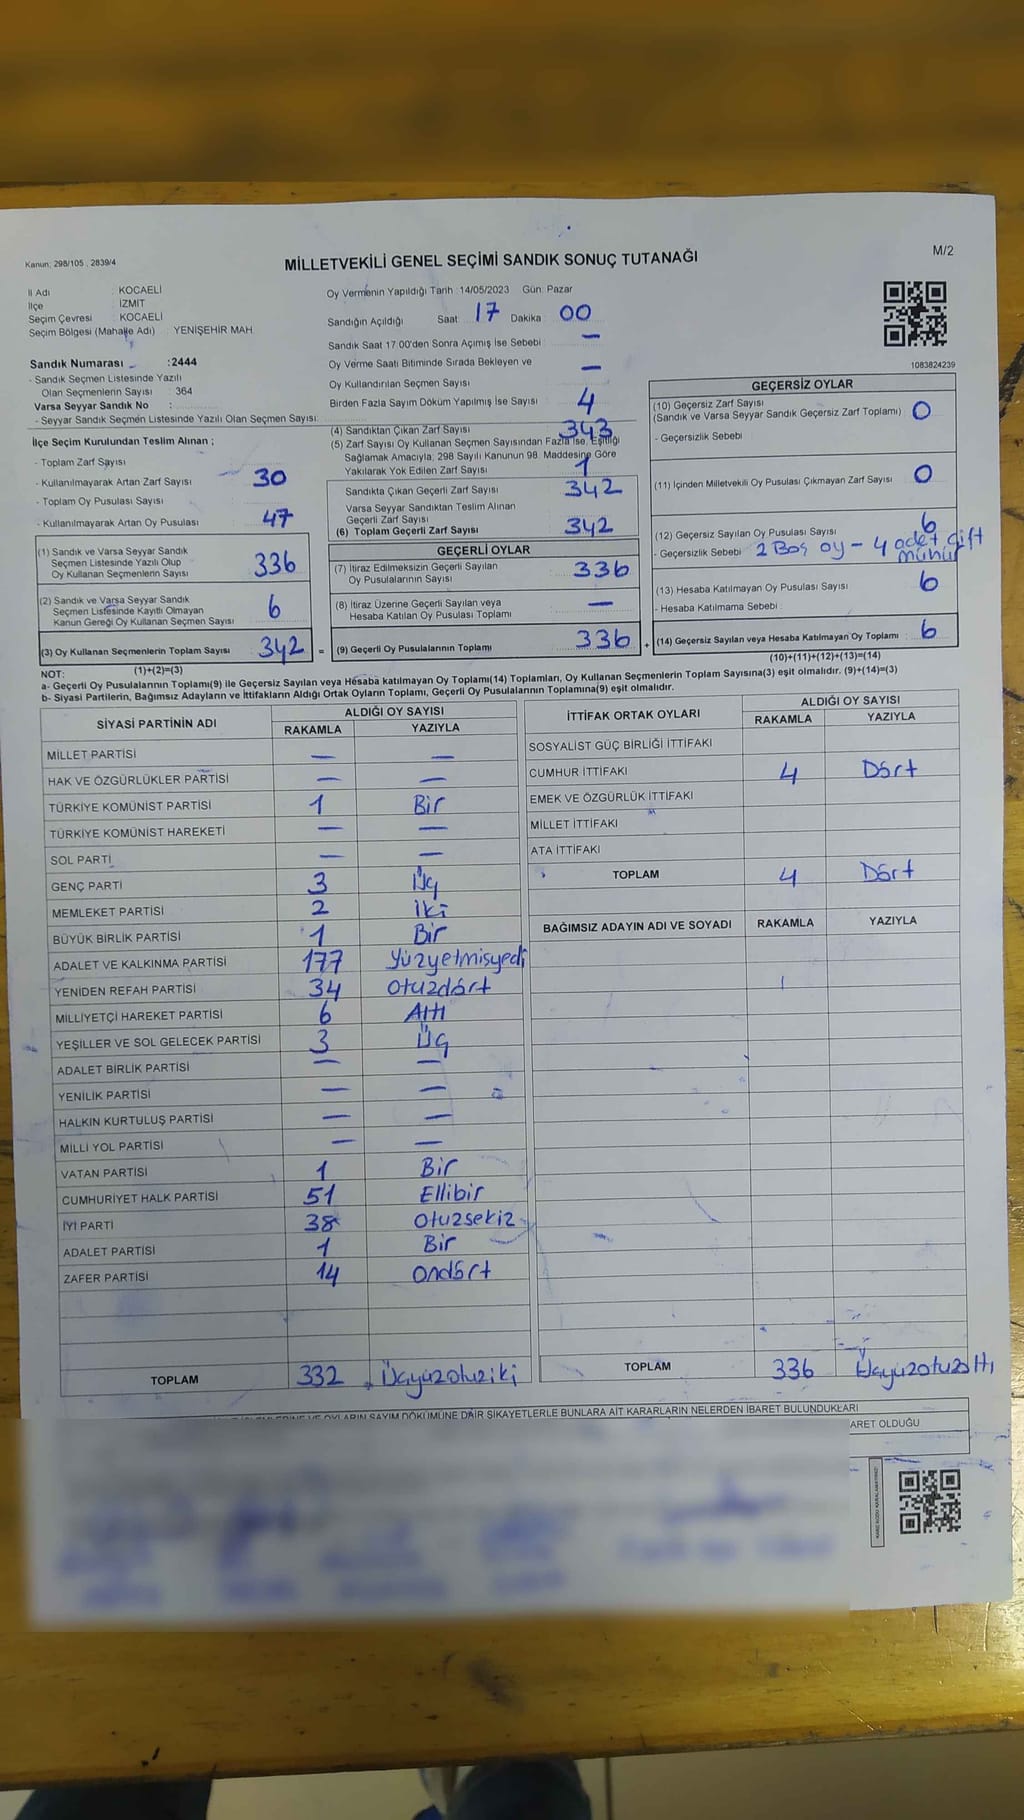 Kanun; 298/105 , 2839/4
MİLLETVEKİLİ GENEL SEÇİMİ SANDIK SONUÇ TUTANAĞI
M/2
İl Adı : KOCAELİ
İlçe : İZMİT
Seçim Çevresi : KOCAELİ
Seçim Bölgesi (Mahalle Adı) : YENİŞEHİR MAH
Sandık Numarası :2444
- Sandık Seçmen Listesinde Yazılı
Olan Seçmenlerin Sayısı : 364
Varsa Seyyar Sandık No :
- Seyyar Sandık Seçmen Listesinde Yazılı Olan Seçmen Sayısı:
İlçe Seçim Kurulundan Teslim Alınan ;
- Toplam Zarf Sayısı
- Kullanılmayarak Artan Zarf Sayısı 30
- Toplam Oy Pusulası Sayısı
- Kullanılmayarak Artan Oy Pusulası 47
(1) Sandık ve Varsa Seyyar Sandık
Seçmen Listesinde Yazılı Olup
Oy Kullanan Seçmenlerin Sayısı 336
(2) Sandık ve Varsa Seyyar Sandık
Seçmen Listesinde Kayıtlı Olmayan
Kanun Gereği Oy Kullanan Seçmen Sayısı 6
(3) Oy Kullanan Seçmenlerin Toplam Sayısı 342 =
(1)+(2)=(3)
Oy Vermenin Yapıldığı Tarih :14/05/2023 Gün: Pazar
Sandığın Açıldığı Saat 17 Dakika 00
Sandık Saat 17.00'den Sonra Açımış İse Sebebi : —
Oy Verme Saati Bitiminde Sırada Bekleyen ve
Oy Kullandırılan Seçmen Sayısı —
Birden Fazla Sayım Döküm Yapılmış İse Sayısı 4
(4) Sandıktan Çıkan Zarf Sayısı 343
(5) Zarf Sayısı Oy Kullanan Seçmen Sayısından Fazla İse, Eşitliği
Sağlamak Amacıyla; 298 Sayılı Kanunun 98. Maddesine Göre
Yakılarak Yok Edilen Zarf Sayısı 1
Sandıkta Çıkan Geçerli Zarf Sayısı 342
Varsa Seyyar Sandıktan Teslim Alınan
Geçerli Zarf Sayısı
(6) Toplam Geçerli Zarf Sayısı 342
GEÇERLİ OYLAR
(7) İtiraz Edilmeksizin Geçerli Sayılan
Oy Pusulalarının Sayısı 336
(8) İtiraz Üzerine Geçerli Sayılan veya
Hesaba Katılan Oy Pusulası Toplamı —
(9) Geçerli Oy Pusulalarının Toplamı 336 +
1083824239
GEÇERSİZ OYLAR
(10) Geçersiz Zarf Sayısı
(Sandık ve Varsa Seyyar Sandık Geçersiz Zarf Toplamı) 0
- Geçersizlik Sebebi :
(11) İçinden Milletvekili Oy Pusulası Çıkmayan Zarf Sayısı 0
(12) Geçersiz Sayılan Oy Pusulası Sayısı 6
- Geçersizlik Sebebi : 2 Boş oy - 4 adet çift
mühür
(13) Hesaba Katılmayan Oy Pusulası Sayısı 6
- Hesaba Katılmama Sebebi :
(14) Geçersiz Sayılan veya Hesaba Katılmayan Oy Toplamı 6
(10)+(11)+(12)+(13)=(14)
NOT:
a- Geçerli Oy Pusulalarının Toplamı(9) ile Geçersiz Sayılan veya Hesaba katılmayan Oy Toplamı(14) Toplamları, Oy Kullanan Seçmenlerin Toplam Sayısına(3) eşit olmalıdır. (9)+(14)=(3)
b- Siyasi Partilerin, Bağımsız Adayların ve İttifakların Aldığı Ortak Oyların Toplamı, Geçerli Oy Pusulalarının Toplamına(9) eşit olmalıdır.
SİYASİ PARTİNİN ADI ALDIĞI OY SAYISI
RAKAMLA YAZIYLA
MİLLET PARTİSİ — —
HAK VE ÖZGÜRLÜKLER PARTİSİ — —
TÜRKİYE KOMÜNİST PARTİSİ 1 Bir
TÜRKİYE KOMÜNİST HAREKETİ — —
SOL PARTİ — —
GENÇ PARTİ 3 Üç
MEMLEKET PARTİSİ 2 İki
BÜYÜK BİRLİK PARTİSİ 1 Bir
ADALET VE KALKINMA PARTİSİ 177 Yüzyetmişyedi
YENİDEN REFAH PARTİSİ 34 Otuzdört
MİLLİYETÇİ HAREKET PARTİSİ 6 Altı
YEŞİLLER VE SOL GELECEK PARTİSİ 3 Üç
ADALET BİRLİK PARTİSİ — —
YENİLİK PARTİSİ — —
HALKIN KURTULUŞ PARTİSİ — —
MİLLİ YOL PARTİSİ — —
VATAN PARTİSİ 1 Bir
CUMHURİYET HALK PARTİSİ 51 Ellibir
İYİ PARTİ 38 Otuzsekiz
ADALET PARTİSİ 1 Bir
ZAFER PARTİSİ 14 Ondört
TOPLAM 332 Üçyüzotuziki
İTTİFAK ORTAK OYLARI ALDIĞI OY SAYISI
RAKAMLA YAZIYLA
SOSYALİST GÜÇ BİRLİĞİ İTTİFAKI
CUMHUR İTTİFAKI 4 Dört
EMEK VE ÖZGÜRLÜK İTTİFAKI
MİLLET İTTİFAKI
ATA İTTİFAKI
TOPLAM 4 Dört
BAĞIMSIZ ADAYIN ADI VE SOYADI RAKAMLA YAZIYLA
TOPLAM 336 Üçyüzotuzaltı
OYLARIN SAYIM DÖKÜMÜNE DAİR ŞİKAYETLERLE BUNLARA AİT KARARLARIN NELERDEN İBARET BULUNDUKLARI
ARET OLDUĞU